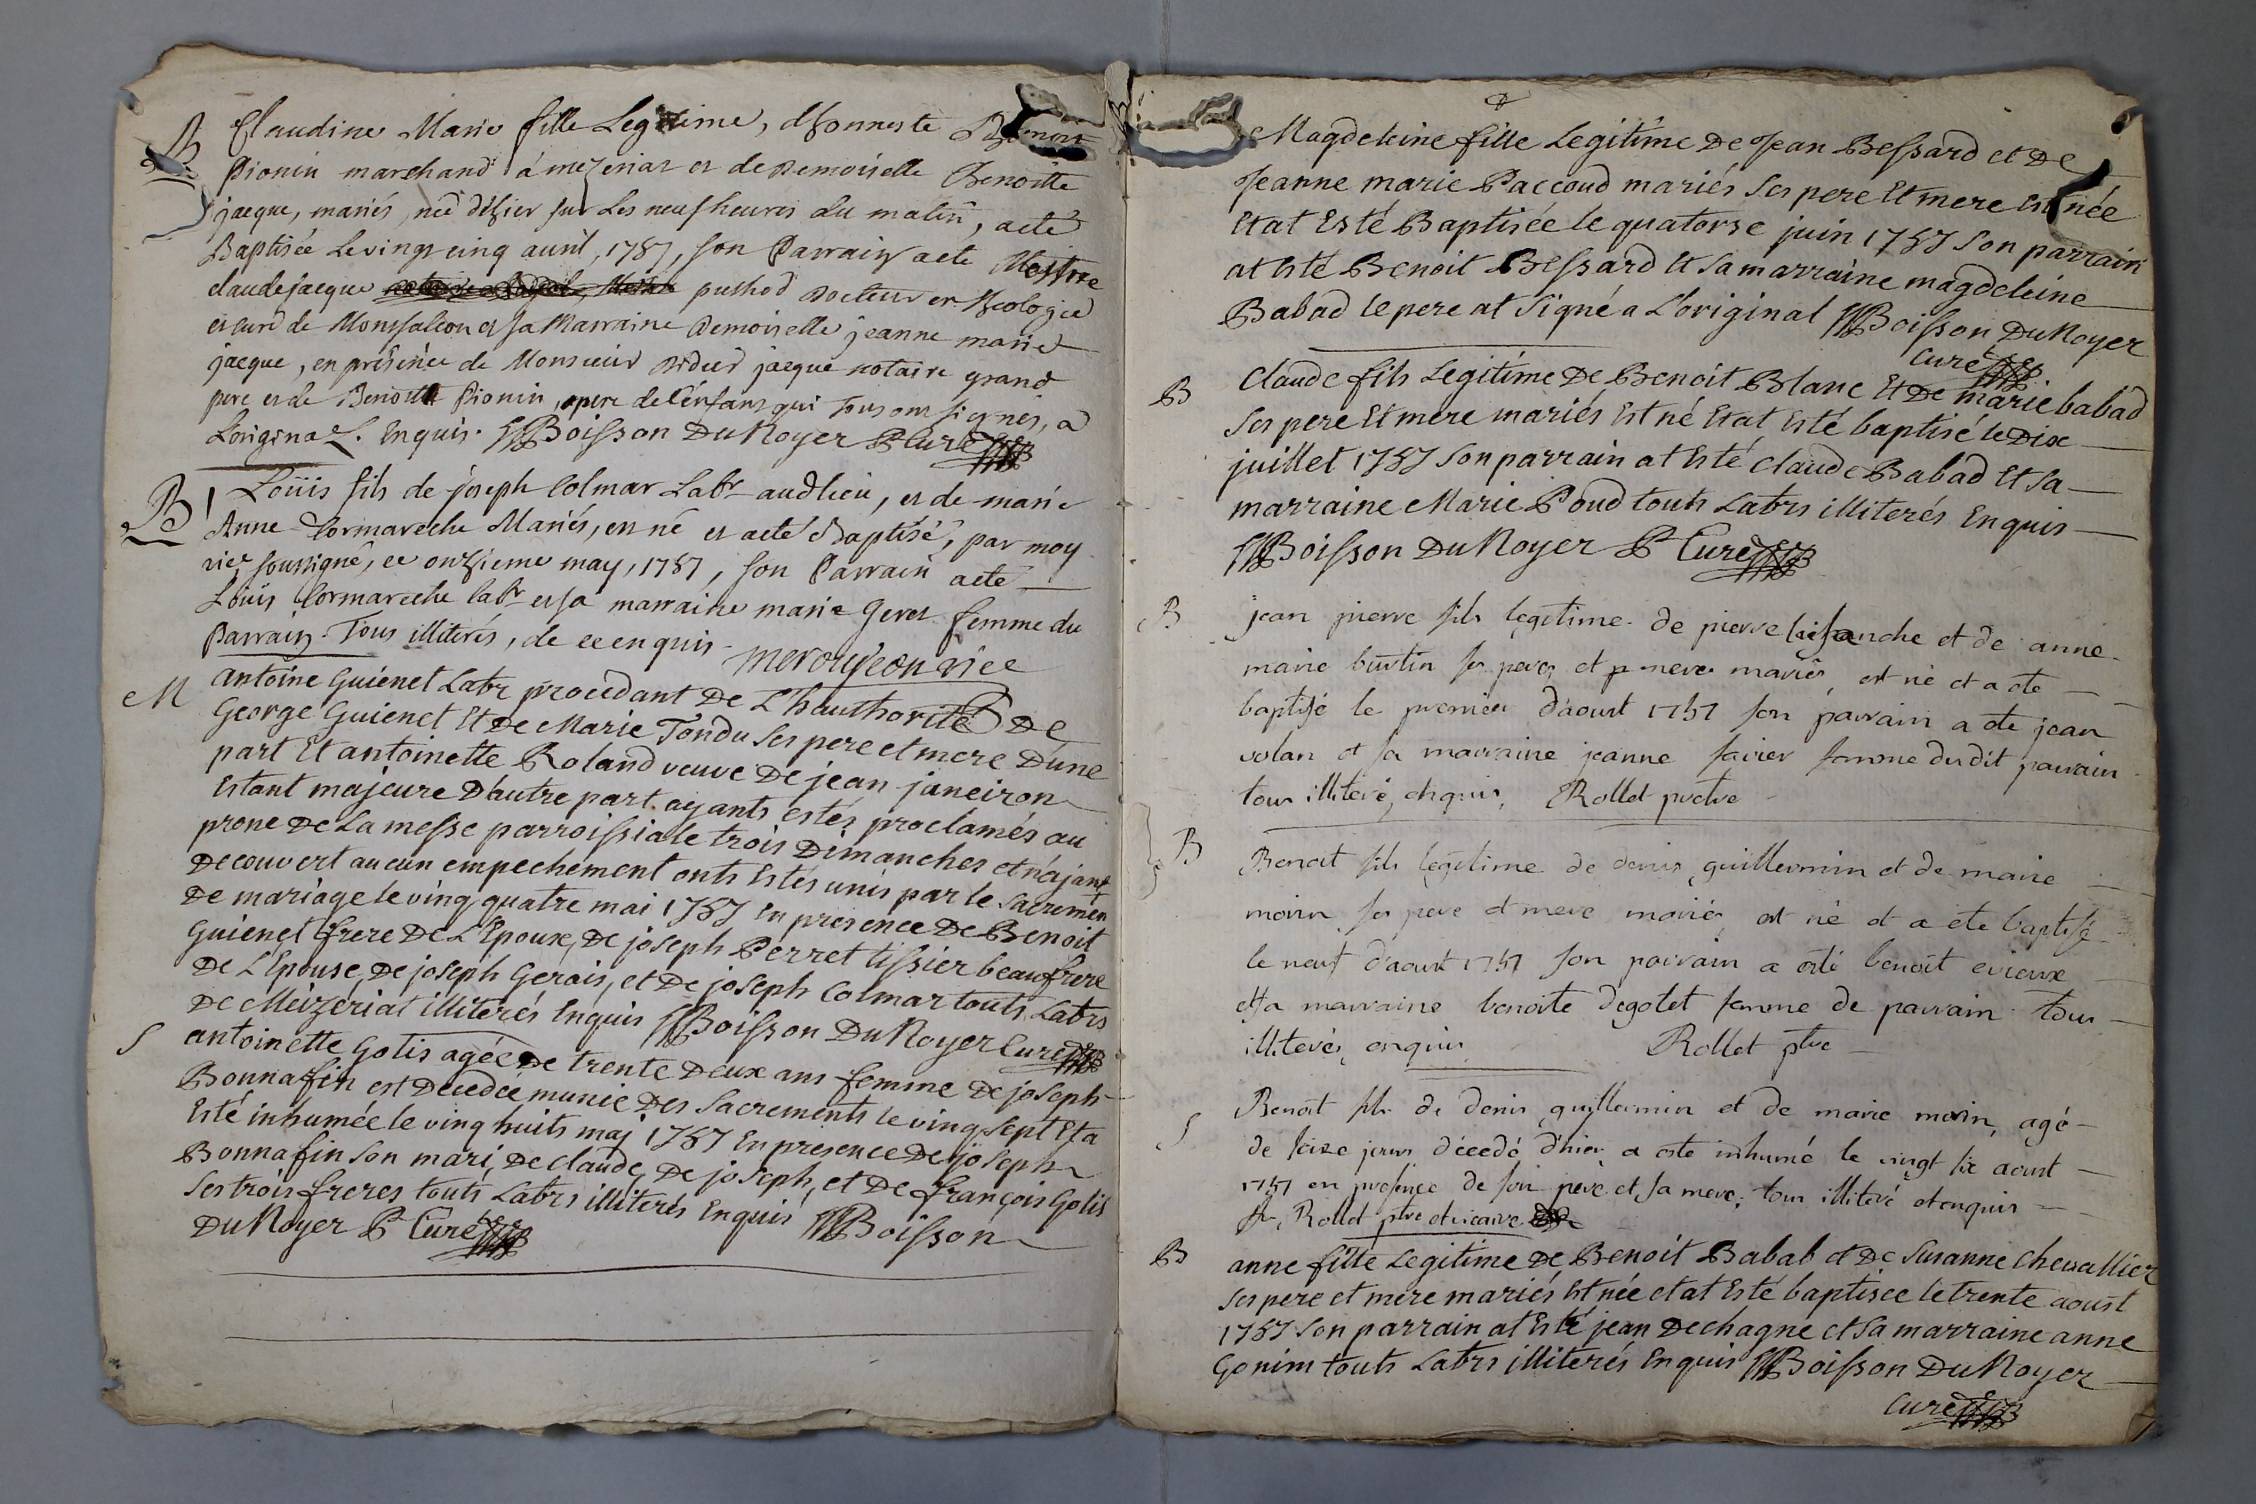 B Claudine Marie fille Legitime, d'honneste Benoit
Pionin marchand á mezeriat et de Demoiselle Benoitte
jacque, mariés, née d'hier sur Les neufheures du matin, acté
Baptisée Levingt cinq avril, 1787, son Parrain acté Messire
claude jacque puthod Docteur en Theologie
et curé de Montfalcon et sa Marraine Demoiselle jeanne marie
jacque, en présence de Monsieur Didier jacque notaire grand
pere et de Benoit Pionin, pere de l'énfant qui Tous ont signés, a
Loriginal. Enquis. Boisson DuNoyer Ptr Curé
B Loüis fils de joseph Colmar Labr audlieu, et de marie
Anne Cormareche Mariés, en né et acté Baptisé, par moy
vicr soussigné, ce onzieme may, 1787, son Parrain acté
Loüis Cormareche labr et sa marraine marie Geret femme du
Parrain. Tous illiterés, de ce enquis. meroujeon vice
M antoine Guienet Labr procedant De L'hauthorité De
George Guienet Et De Marie Tondu ses pere et mere D'une
part Et antoinette Roland veuve De jean janeiron
Estant majeure D'autre part. ayants estés proclamés au
prone De La messe parroissiale trois Dimanches et n'ajant
Decouvert aucun empechement onts Estés unis par le Sacremen
De mariage le vingt quatre mai 1787 En presence De Benoit
Guienet frere De L'Epoux, De joseph Perret tissier beaufrere
De L'Epouse, De joseph Gerais, et De joseph Colmar touts Labrs
De Meizeriat illiterés Enquis Boisson DuNoyer Curé
S antoinette Golis agée De trente Deux ans femme De joseph
Bonnafin est Decedée munie Des Sacrements le ving sept Et a
Esté inhumée le ving huits maj 1787 En presence De joseph
Bonnafin son mari, De claude, De joseph, et De françois Golis
ses trois freres touts Labrs illiterés Enquis Boisson
DuNoyer Ptr Curé
Magdeleine fille Legitime De Jean Bessard et De
Jeanne marie Paccoud mariés ses pere Et mere Est née
Etat Esté Baptisée le quatorse juin 1787 Son parrain
at Esté Benoit Bessard Et sa marraine magdeleine
Babad le pere at signé a L'original Boisson DuNoyer
Curé
B Claude fils Legitime De Benoit Blanc Et De marie babad
ses pere Et mere mariés Est né Etat Esté baptisé le Dix
juillet 1787 Son parrain at Esté Claude Babad Et sa
marraine Marie Poud touts Labrs illiterés Enquis
Boisson DuNoyer Ptr Curé
B jean pierre fils legitime de pierre et de anne
marie burtin ses peres et meres mariés, est né et a ete
baptisé le premier d'aoust 1787 son parrain a ete jean
volan et sa marraine jeanne favier femme dudit parrain
tous illiteré, enquis, Rollet pretre
B Benoit fils legitime de denis guillermin et de marie
morin ses pere et mere mariés est né et a ete baptisé
le neuf d'aoust 1787 son parrain a esté benoit evieux
et sa marraine benoite degolet femme de parrain tous
illiterés enquis Rollet ptre
S Benoit fils de denis guillermin et de marie morin, agé
de seize jours décedé d'hier a esté inhumé le vingt six aoust
1787 en presence de son pere et sa mere; tous illiteré et enquis
Rollet ptre et vicaire
B anne fille Legitime De Benoit Babab et De Susanne Chevallier
ses pere et mere mariés Est née et at Esté baptisée le trente aoust
1787 Son parrain at Esté jean Dechagne et sa marraine anne
Gonim touts Labrs illiterés Enquis Boisson DuNoyer
Curé